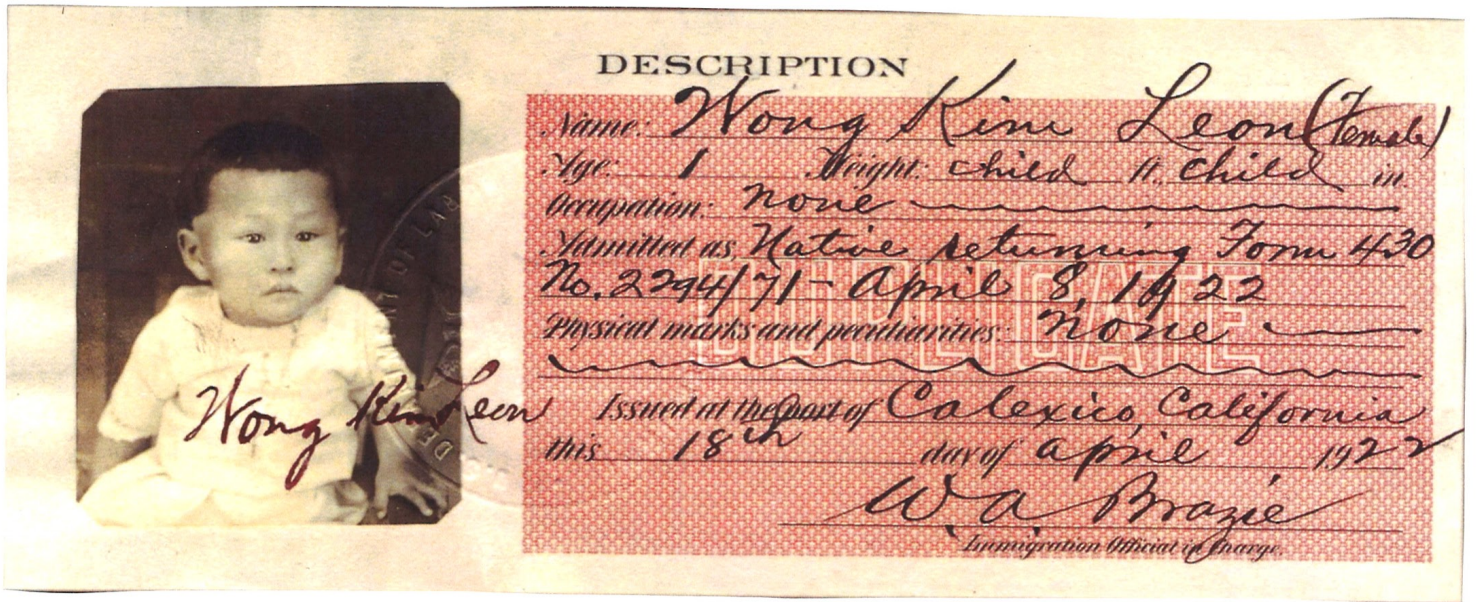 DESCRIPTION
Name: Wong Kim Leon (Female)
Age: 1 Height: child ft., child in.
Occupation: none
Admitted as Native returning Form 430
No. 2294/71 - April 8, 1922
Physical marks and peculiarities: none
DUPLICATE
Issued at the port of Calexico, California
this 18th day of April 1922
W. A. Brazie
Immigration Official in Charge.
Wong Kim Leon
DEPARTMENT OF LAB